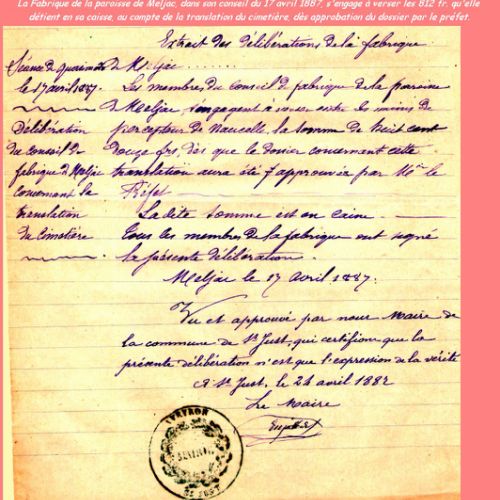 La Fabrique de la paroisse de Meljac, dans son conseil du 17 avril 1887, s'engage à verser les 812 fr. qu'elle
détient en sa caisse, au compte de la translation du cimetière, dès approbation du dossier par le préfet.
Extrait des délibérations de la fabrique
de Meljac
Séance de
le 17 avril 1887.
Délibération
du Conseil de
fabrique de Meljac
concernant la
translation
du Cimetière
Les membres du Conseil de fabrique de la paroisse
de Meljac s'engagent à verser entre les mains du
percepteur de Naucelle, la somme de huit cent
douze frs, dès que le dossier concernant cette
translation aura été approuvée par Mr le
Préfet
La dite somme est en caisse.
Tous les membres de la fabrique ont signé
la présente délibération.
Meljac le 17 avril 1887.
Vu et approuvé par nous Maire de
la commune de St Just, qui certifions que la
présente délibération n'est que l'expression de la vérité
à St Just, le 24 avril 1887
Le Maire
AVEYRON
ST JUST